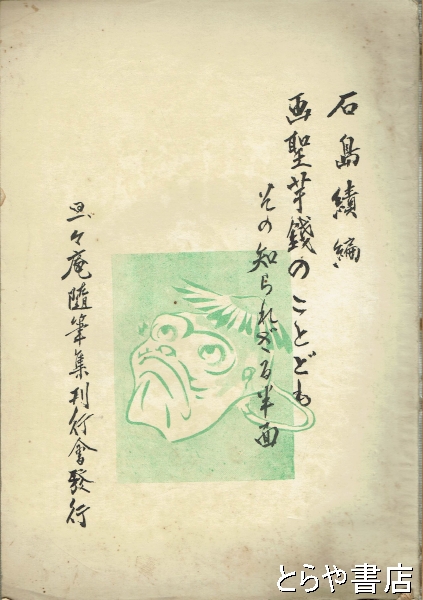 石島績編
画聖芋銭のことども
その知られざる半面
旦々庵随筆集刊行會發行
とらや書店